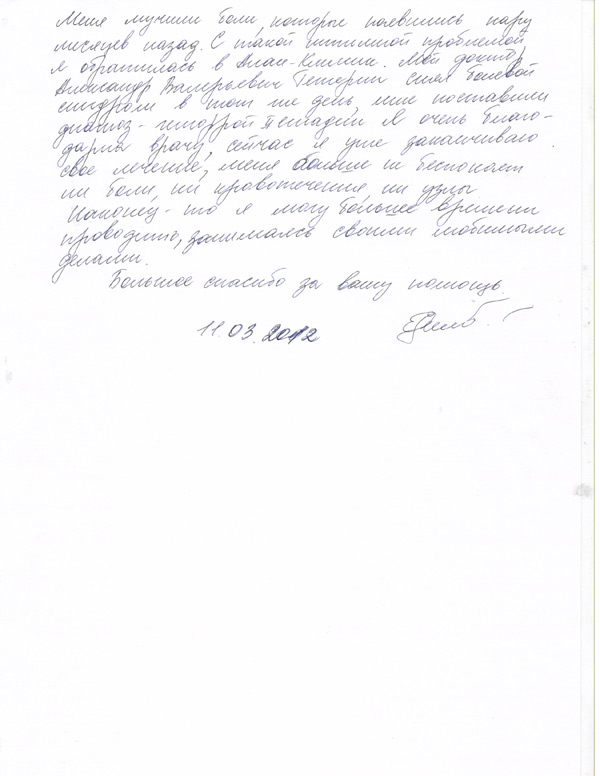 Меня мучили боли, которые появились пару
месяцев назад. С такой интимной проблемой
я обратилась в Алан-Клиник. Мой доктор,
Александр Валерьевич снял болевой
синдром в тот же день, мне поставили
диагноз - геморрой II стадии Я очень благо-
дарна врачу, сейчас я уже заканчиваю
свое лечение, меня больше не беспокоят
ни боли, ни кровотечения, ни узлы
Наконец-то я могу больше времени
проводить, занимаясь своими любимыми
делами.
Большое спасибо за вашу помощь.
11.03.2012